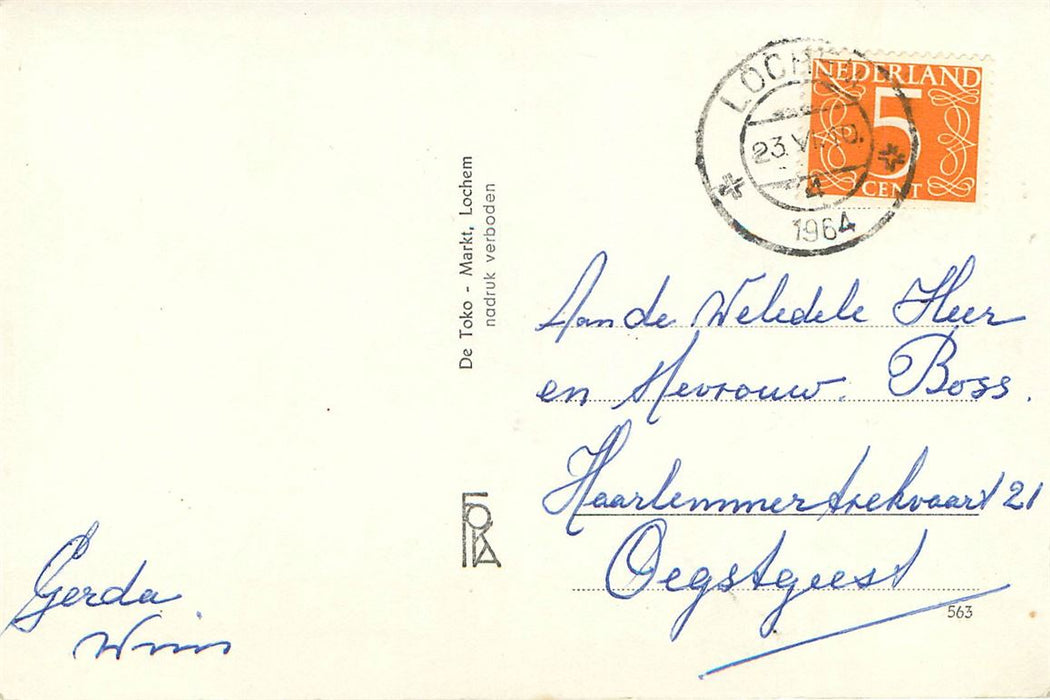 LOCHEM
23.VI.10.
4
1964
NEDERLAND
5
CENT
De Toko - Markt, Lochem
nadruk verboden
FOKA
Aan de Weledele Heer
en Mevrouw. Boss.
Haarlemmertrekvaart 21
Oegstgeest
563
Gerda
Wim